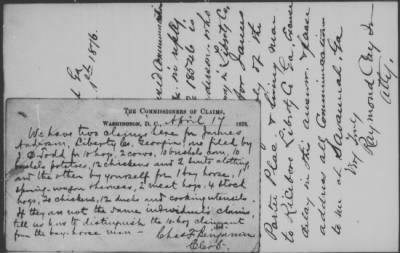 THE COMMISSIONERS OF CLAIMS,
WASHINGTON, D. C., April 14 1876.
We have two claims here for James
Anderson, Liberty Co. Georgia, one filed by
J C Dodd for 10 hogs, 2 cows, 10 bushels corn, 10
bushels potatoes, 12 chickens and 2 suits clothing,
and the other by yourself for 1 bay horse, 1
spring-wagon & harness, 2 meat hogs, 4 stock
hogs, 20 chickens, 12 ducks and cooking utensils.
If they are not the same individual's claims,
tell us how to distinguish the 10 hog claimant
from the bay-horse man—
Chas F Benjamin
Clerk.
Ga
1876.
Communication
in reply
18546 is
who
in Liberty Co
for James
of the
Parties Place & living near
to Riceboro Liberty Co. Ga.
delay in the answer & please
address all Communications
to me at Savannah. Ga
Very Truly
Raymond Cay Jr
Atty.